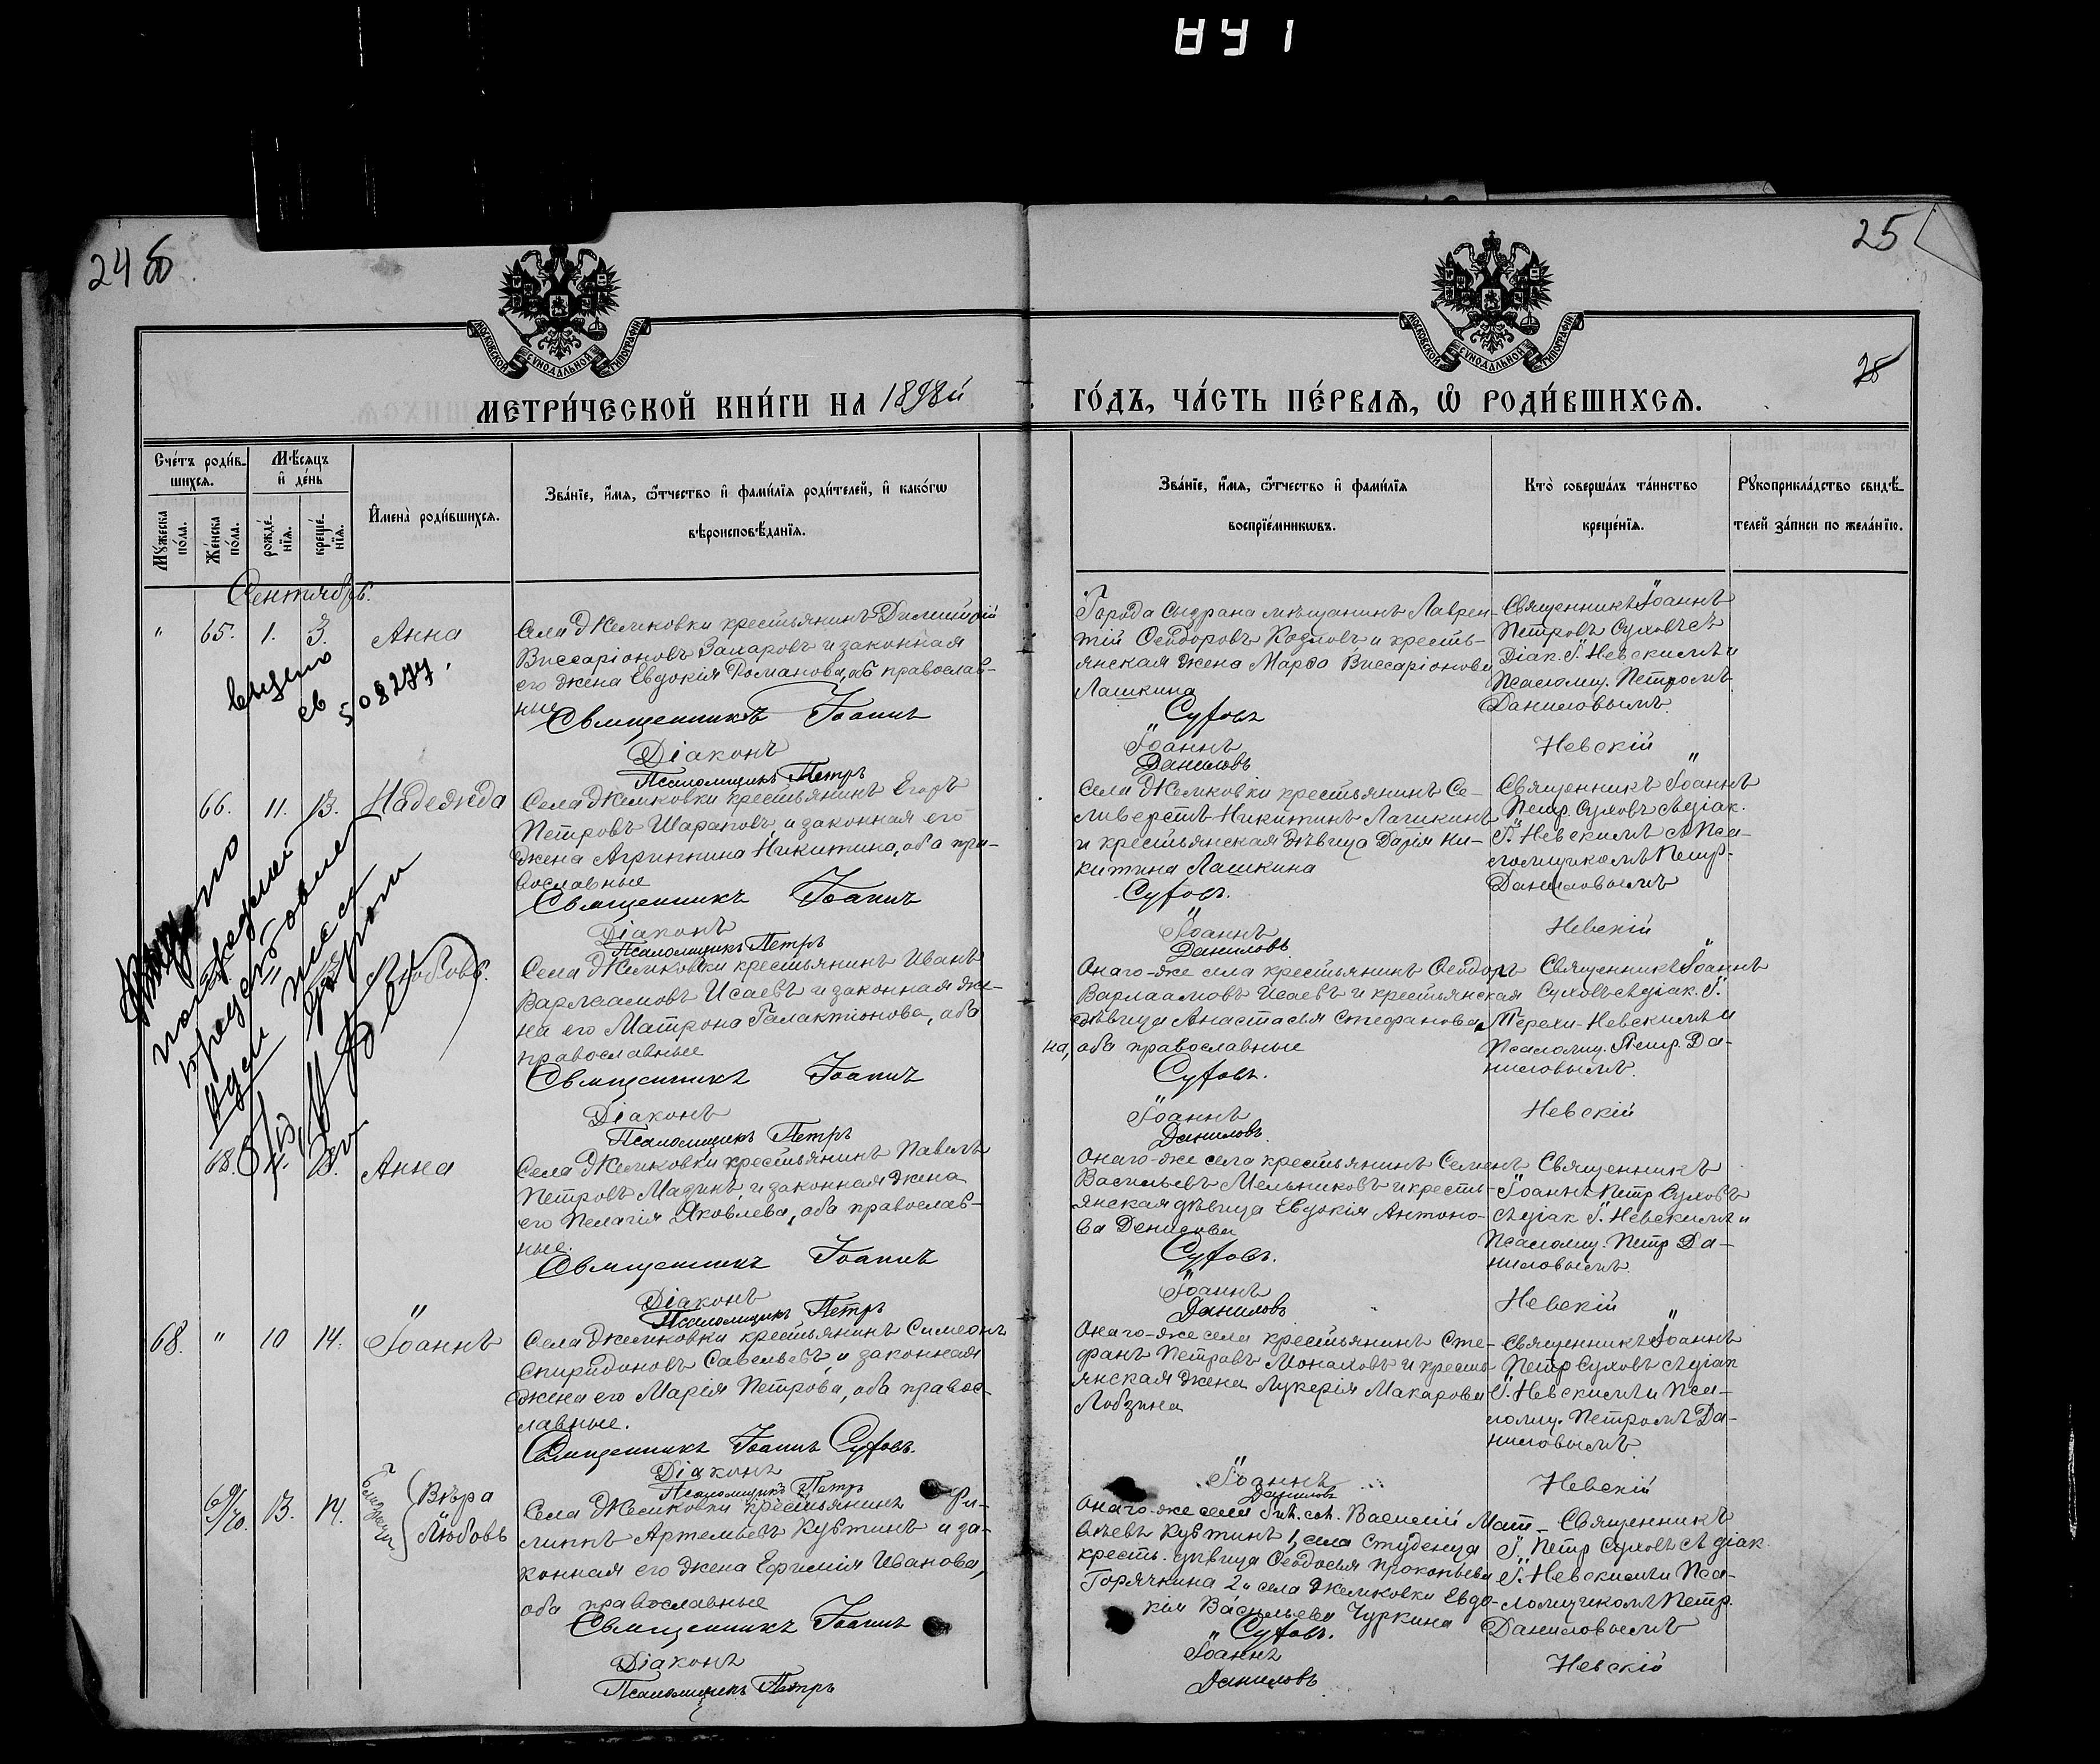 1681
24 об
25
МОСКОВСКОЙ СѴНОДАЛЬНОЙ ТИПОГРАФІИ
МОСКОВСКОЙ СѴНОДАЛЬНОЙ ТИПОГРАФІИ
25
МЕТРИ́ЧЕСКОЙ КНИ́ГИ НА 1898й ГО́ДЪ, ЧА́СТЬ ПЕ́РВАѦ, Ѽ РОДИ́ВШИХСѦ.
Сче́тъ роди́в-
шихсѧ.
Мѣ́сѧцъ
и҆ де́нь
Мꙋ́жеска
по́ла.
Же́нска
по́ла.
рожде́-
нїѧ.
креще́-
нїѧ.
И҆мена̀ роди́вшихсѧ.
Зва́нїе, и҆́мѧ, ѻ҆́тчество и҆ фами́лїѧ роди́телей, и҆ како́гѡ
вѣроисповѣ́данїѧ.
Зва́нїе, и҆́мѧ, ѻ҆́тчество и҆ фами́лїѧ
воспрїе́мникѡвъ.
Кто̀ соверша́лъ та́инство
креще́нїѧ.
Рꙋкоприкла́дство свидѣ́-
телей за́писи по жела́нїю.
Сентябрь.
" 65. 1. 3. Анна
выдано
св 508277.
Села Жемковки крестьянинъ Димитрій
Виссаріоновъ Захаровъ и законная
его жена Евдокія Романова, об православ-
ные
Священникъ Іоаннъ
Діаконъ
Псаломщикъ Петръ
Города Сызрана мѣщанинъ Лаврен-
тій Ѳеодоровъ Козловъ и кресть-
янская жена Марѳа Виссаріонова
Лашкина
Суховъ
Іоаннъ
Даниловъ
Священникъ Іоаннъ
Петровъ Суховъ съ
Діак. І. Невскимъ и
Псаломщ. Петромъ
Даниловымъ.
Невскій
66. 11. 13. Надежда
Села Жемковки крестьянинъ Егоръ
Петровъ Шараповъ, и законная его
жена Агрипина Никитина, оба пра-
вославные
Священникъ Іоаннъ
Діаконъ
Псаломщикъ Петръ
Села Жемковки крестьянинъ Се-
ливерстъ Никитинъ Лашкинъ
и крестьянская дѣвица Дарія Ни-
китина Лашкина
Суховъ.
Іоаннъ
Даниловъ
Священникъ Іоаннъ
Петр. Суховъ съ діак.
І. Невскимъ и Пса-
ломщикомъ Петр.
Даниловымъ
Невскій
Любовь.
Села Жемковки крестьянинъ Иванъ
Варлаамовъ Исаевъ и законная же-
на его Матрона Галактіонова, оба
православные
Священникъ Іоаннъ
Діаконъ
Псаломщикъ Петръ
Онаго-же села крестьянинъ Ѳеодоръ
Варлаамовъ Исаевъ и крестьянская
дѣвица Анастасья Стефанова Терехи-
на, оба православные
Суховъ.
Іоаннъ
Даниловъ.
Священникъ Іоаннъ
Суховъ съ діак. І.
Невскимъ и
Псаломщ. Петр. Да-
ниловымъ.
Невскій
68. Анна
Села Жемковки крестьянинъ Павелъ
Петровъ Мадинъ, и законная жена
его Пелагія Яковлева, оба православ-
ные.
Священникъ Іоаннъ
Діаконъ
Псаломщикъ Петръ
Онаго-же села крестьянинъ Семенъ
Васильевъ Мельниковъ и кресть-
янская дѣвица Евдокія Антоно-
ва Денисова
Суховъ.
Іоаннъ
Даниловъ
Священникъ
Іоаннъ Петр Суховъ
съ діак І. Невскимъ и
Псаломщ. Петр Да-
ниловымъ.
Невскій
68. " 10 14. Іоаннъ
Села Жемковки крестьянинъ Симеонъ
Спиридоновъ Савельевъ, и законная
жена его Марія Петрова, оба правос-
лавные.
Священникъ Іоаннъ Суховъ.
Діаконъ
Псаломщикъ Петръ
Онаго-же села крестьянинъ Сте-
фанъ Петровъ Монаховъ и кресть
янская жена Лукерія Макарова
Лобзина
Іоаннъ
Даниловъ
Священникъ Іоаннъ
Петр Суховъ съ діак
І. Невскимъ и Пса-
ломщ. Петромъ Да-
ниловымъ
Невскій
69/70. 13. 14. Близнецы Вѣра
Любовь
Села Жемковки крестьянинъ Фи-
липпъ Артемьевъ Кузминъ и за-
конная его жена Ефимія Иванова,
оба православные
Священникъ Іоаннъ
Діаконъ
Псаломщикъ Петръ
Онаго-же села Василій Мат-
вѣевъ Кузминъ 1, села Студенца
кресть. дѣвица Ѳеодосья Прокопьева
Горячкина 2 и села Жемковки Евдо-
кія Васильева Чуркина
Суховъ.
Іоаннъ
Даниловъ
Священникъ
І. Петр Суховъ съ діак
І. Невскимъ и Пса-
ломщикомъ Петр.
Даниловымъ
Невскій